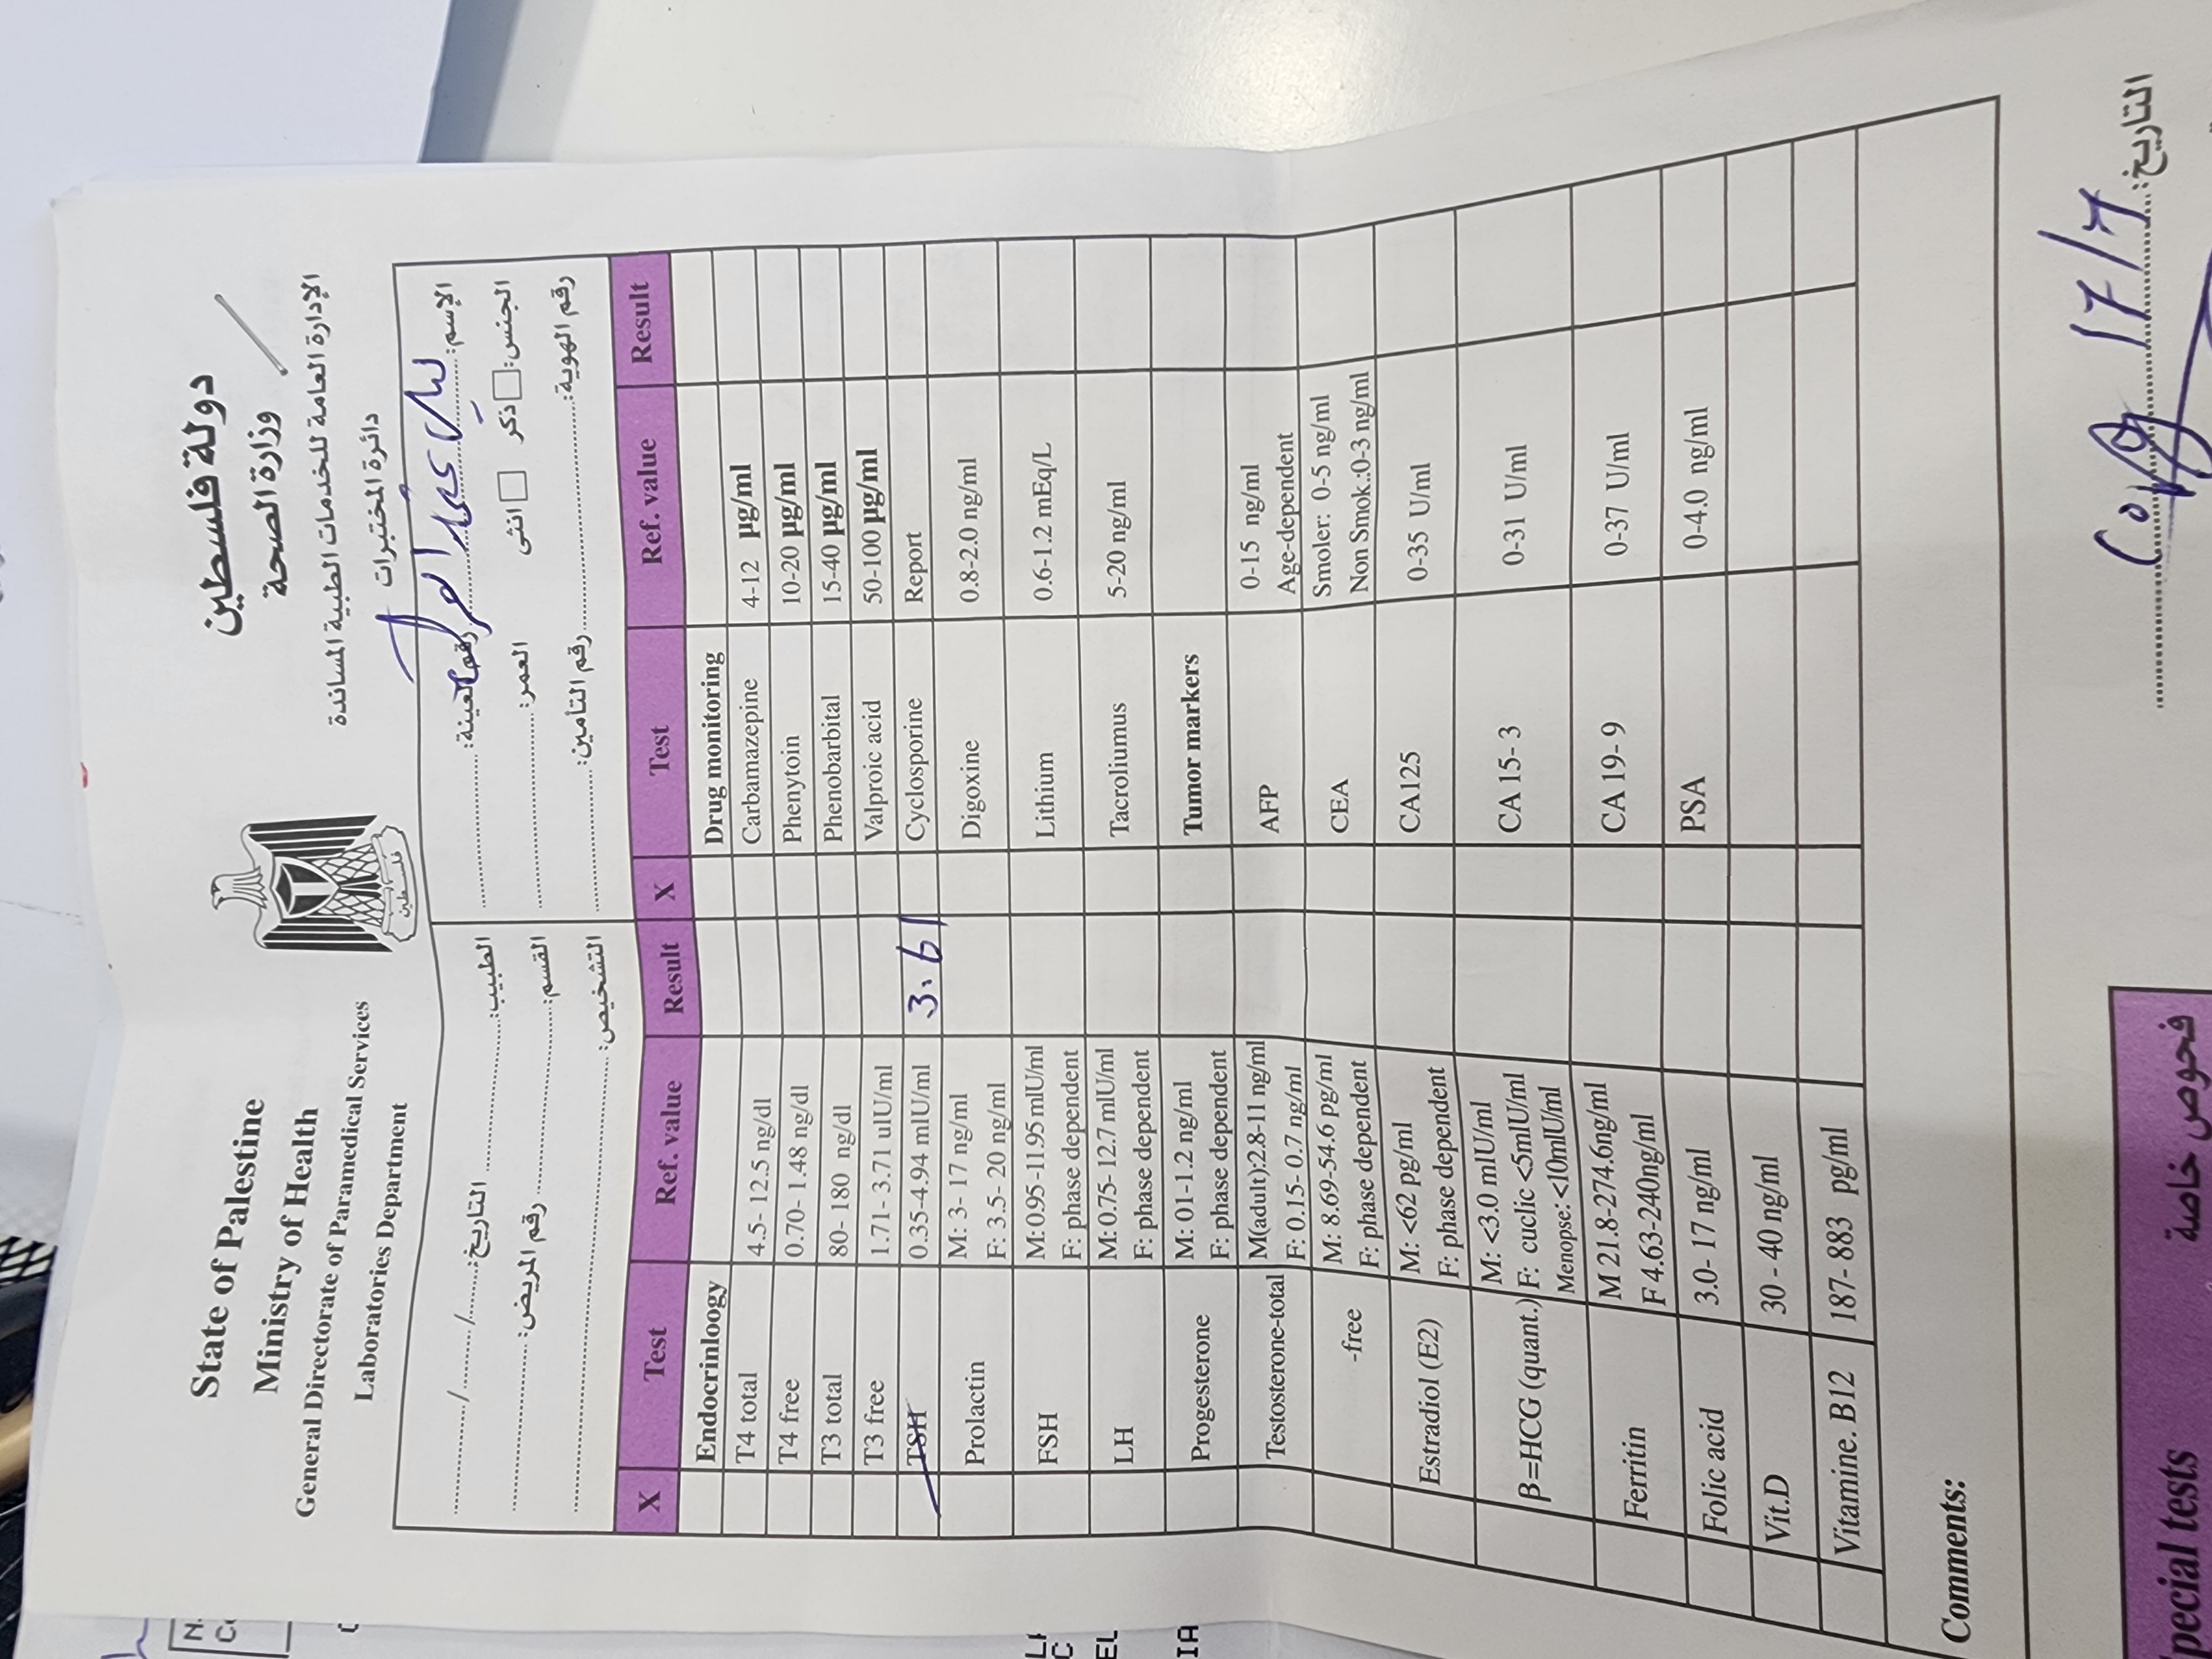 State of Palestine
Ministry of Health
General Directorate of Paramedical Services
Laboratories Department
دولة فلسطين
وزارة الصحة
الإدارة العامة للخدمات الطبية المساندة
دائرة المختبرات
الإسم:
رقم العينة:
الجنس: ذكر انثى
العمر:
رقم الهوية:
رقم التأمين:
الطبيب:
التاريخ: / /
القسم:
رقم المريض:
التشخيص:
X Test Ref. value Result X Test Ref. value Result
Endocrinloogy Drug monitoring
T4 total 4.5- 12.5 ng/dl Carbamazepine 4-12 µg/ml
T4 free 0.70- 1.48 ng/dl Phenytoin 10-20 µg/ml
T3 total 80- 180 ng/dl Phenobarbital 15-40 µg/ml
T3 free 1.71- 3.71 uIU/ml Valproic acid 50-100 µg/ml
TSH 0.35-4.94 mIU/ml 3.61 Cyclosporine Report
Prolactin M: 3- 17 ng/ml Digoxine 0.8-2.0 ng/ml
F: 3.5- 20 ng/ml
FSH M:0.95-11.95 mIU/ml Lithium 0.6-1.2 mEq/L
F: phase dependent
LH M:0.75-12.7 mIU/ml Tacroliumus 5-20 ng/ml
F: phase dependent
Progesterone M: 01-1.2 ng/ml Tumor markers
F: phase dependent
Testosterone-total M(adult):2.8-11 ng/ml AFP 0-15 ng/ml
F: 0.15- 0.7 ng/ml Age-dependent
-free M: 8.69-54.6 pg/ml CEA Smoler: 0-5 ng/ml
F: phase dependent Non Smok.:0-3 ng/ml
Estradiol (E2) M: <62 pg/ml CA125 0-35 U/ml
F: phase dependent
β=HCG (quant.) M: <3.0 mIU/ml CA 15- 3 0-31 U/ml
F: cuclic <5mIU/ml
Menopse: <10mIU/ml
Ferritin M 21.8-274.6ng/ml CA 19- 9 0-37 U/ml
F 4.63-240ng/ml
Folic acid 3.0- 17 ng/ml PSA 0-4.0 ng/ml
Vit.D 30 - 40 ng/ml
Vitamine. B12 187- 883 pg/ml
Comments:
التاريخ: 17/7
pecial tests
فحوص خاصة